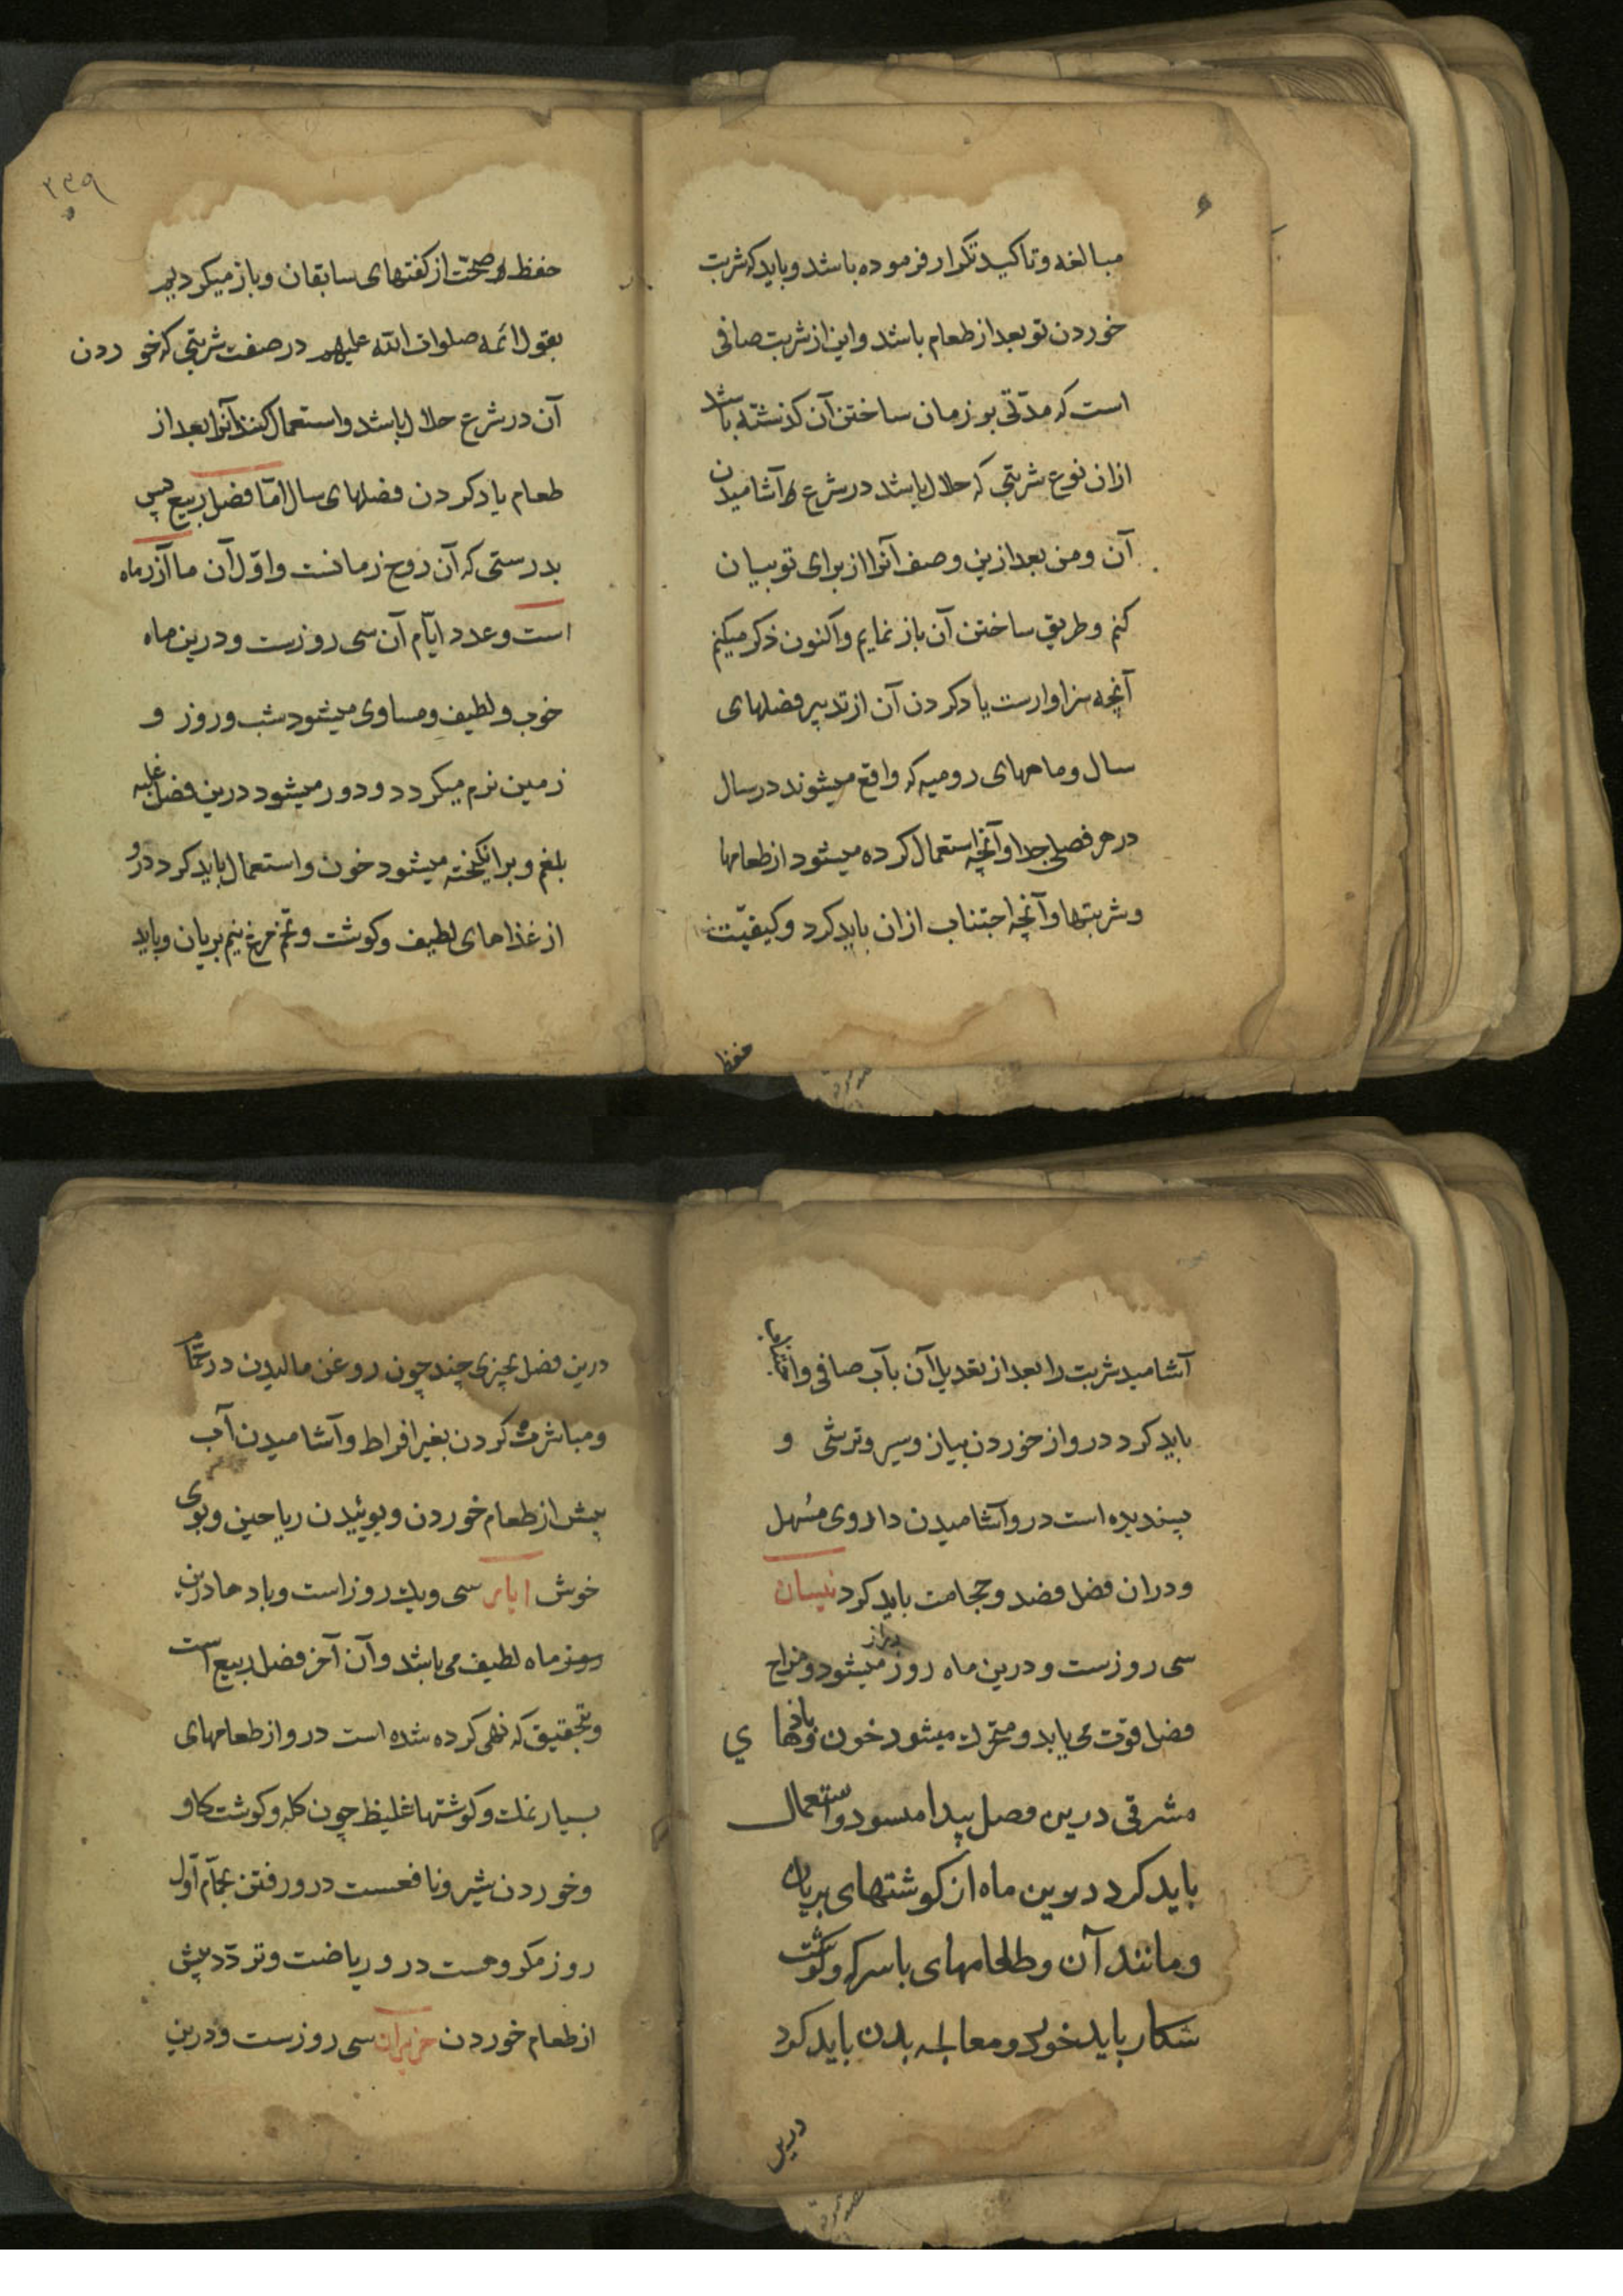 مبالغه و تاکید تکرار فرموده باشد و باید که شربت
خوردن تو بعد از طعام باشد و این از شربت صافی
است که مدّتی بر زمان ساختن آن کذشته باشد
ازان نوع شربتی که حلال باشد در شرع آشامیدن
آن و من بعد ازین وصف آنرا از برای تو بیان
کنم و طریق ساختن آن باز نمایم و اکنون ذکر میکنم
آنچه سزاوارست یاد کردن آن از تدبیر فصلهای
سال و ماههای رومیه که واقع میشوند در سال
در هر فصلی جدا و آنچه استعمال کرده میشود از طعامها
و شربتها و آنچه اجتناب ازان باید کرد و کیفیّت
حفظ
۲۳۹
حفظ صحّت از کفتهای سابقان و باز میکردیم
بقول ائمه صلوات الله علیهم در صفت شربتی که خوردن
آن در شرع حلال باشد و استعمال کنند آنرا بعد از
طعام یاد کردن فصلهای سال امّا فصل ربیع پس
بدرستی که آن روح زمانست و اوّل آن ماه آزر ماه
است و عدد ایّام آن سی روزست و درین ماه
خوب و لطیف و مساوی میشود شب و روز و
زمین نرم میکردد و دور میشود درین فصل غلبه
بلغم و برانکیخته میشود خون و استعمال باید کرد درو
از غذاهای لطیف و کوشت و تخم مرغ نیم بریان و باید
آشامید شربت را بعد از تعدیل آن بآب صافی و اتقا
باید کرد درو از خوردن پیاز و سیر و ترشی و
پسندیده است درو آشامیدن داروی مُسهل
و دران فصل فصد و حجامت باید کرد نیسان
سی روزست و درین ماه روز دراز میشود و مزاج
فصل قوّت می یابد و متحرک میشود خون و بادهای
مشرقی درین فصل پیدا میشود و استعمال
باید کرد درین ماه از کوشتهای بریان
و مانند آن و طعامهای با سرکه و کوشت
شکار باید خورد و معالجه بدن باید کرد
درین
درین فصل بچیزی چند چون روغن مالیدن در حمّام
و مباشرت کردن بغیر افراط و آشامیدن آب
پیش از طعام خوردن و بوئیدن ریاحین و بوی
خوش ایار سی و یک روز است و بادها درین
ماه لطیف می باشد و آن آخر فصل ربیع است
و بتحقیق که نهی کرده شده است درو از طعامهای
بسیار نمک و کوشتها غلیظ چون کله و کوشت کاو
و خوردن شیر و نافعست درو رفتن بحمّام اوّل
روز مکروهست درو ریاضت و تردّد پیش
از طعام خوردن حزیران سی روزست و درین